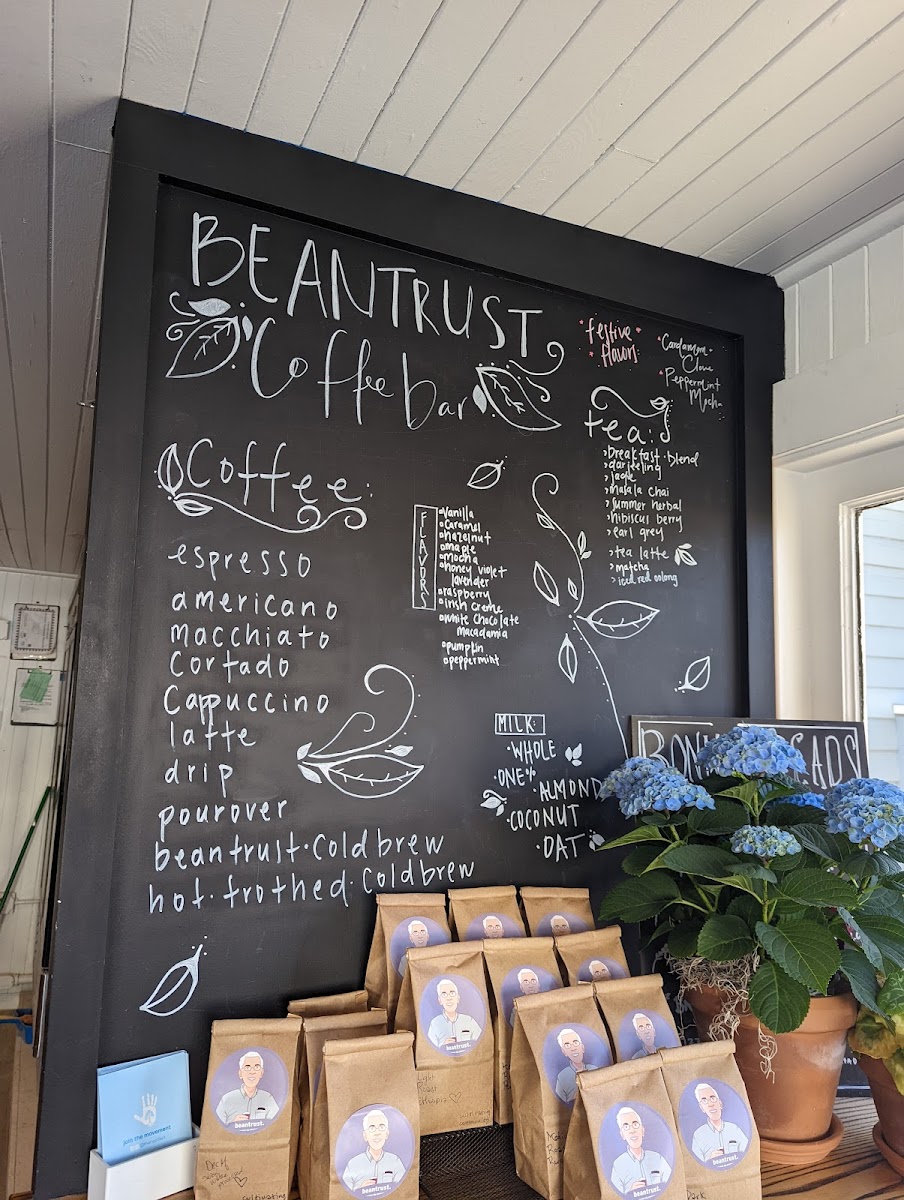 BEANTRUST
Coffee bar
festive
flavors
Cardamom
Clove
Peppermint
Mocha
Coffee:
espresso
americano
macchiato
Cortado
Cappuccino
latte
drip
pourover
beantrust·Coldbrew
hot·frothed·Coldbrew
FLAVORS
Vanilla
Caramel
hazelnut
maple
mocha
honey violet
lavender
raspberry
irish creme
white chocolate
macadamia
pumpkin
peppermint
tea:
breakfast·blend
darjeeling
jade
masala chai
summer herbal
hibiscus berry
earl grey
tea latte
matcha
iced red oolong
MILK:
·WHOLE
·ONE%
·ALMOND
·COCONUT
·OAT
join the movement
beantrust.
Light
Roast
beantrust.
beantrust.
beantrust.
beantrust.
Dark
cultivating